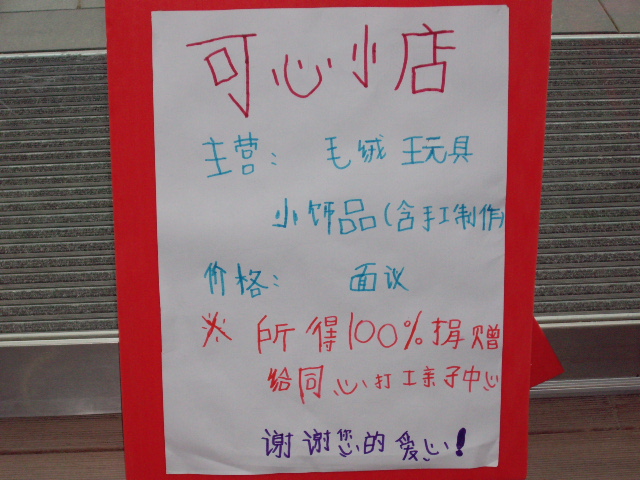 可心小店
主营： 毛绒玩具
小饰品(含手工制作)
价格： 面议
※ 所得100%捐赠
给同心打工亲子中心
谢谢您的爱心!